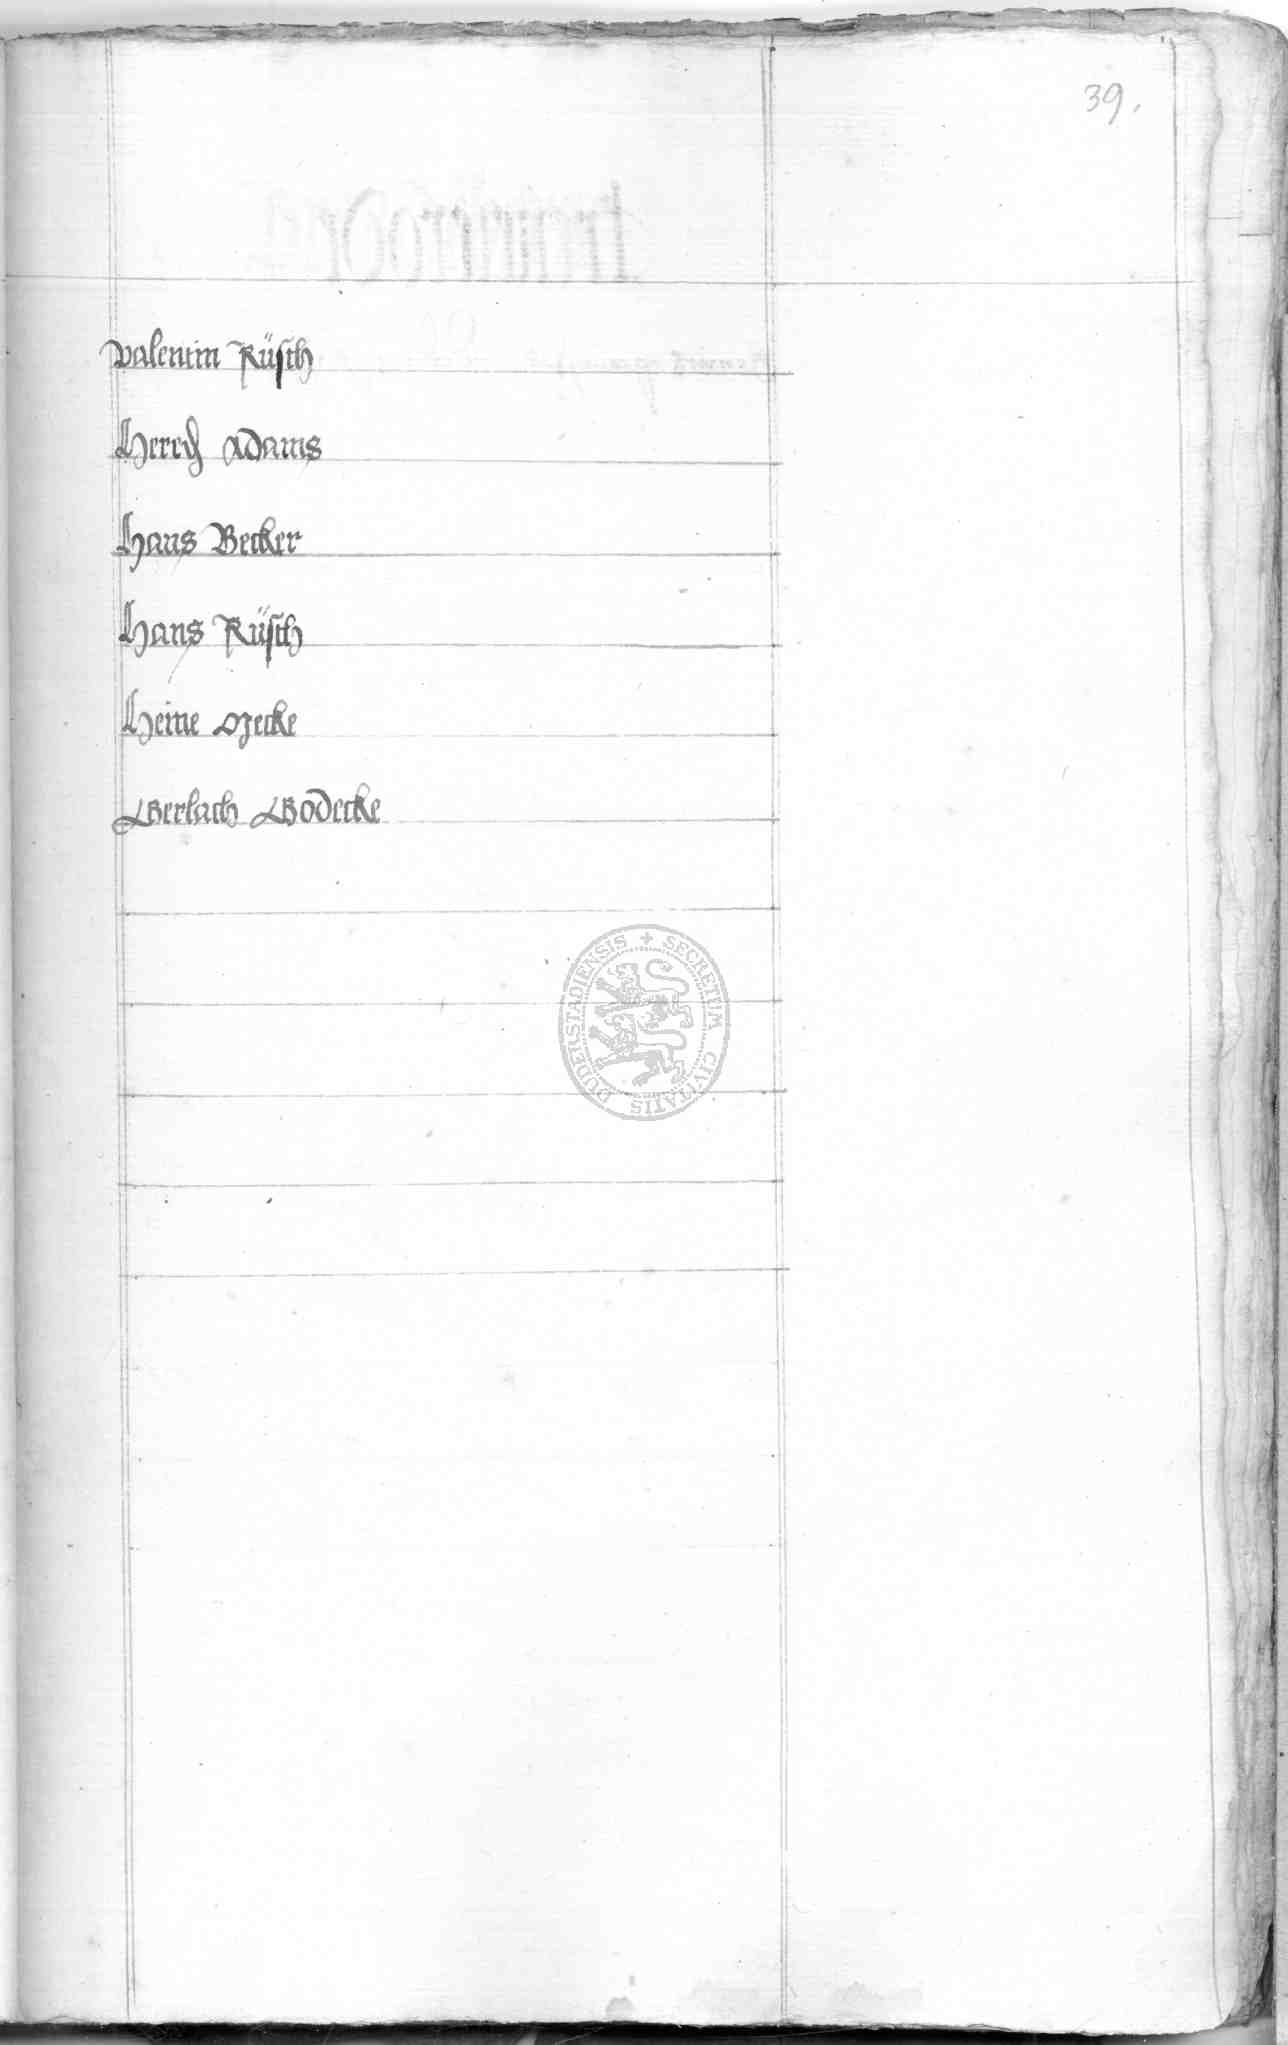 39.
Valentin Rüsch
Adams
Hans Becker
Hans Rüsch
Heine
Gerlach Godecke
SECRETUM CIVITATIS DUDERSTADIENSIS